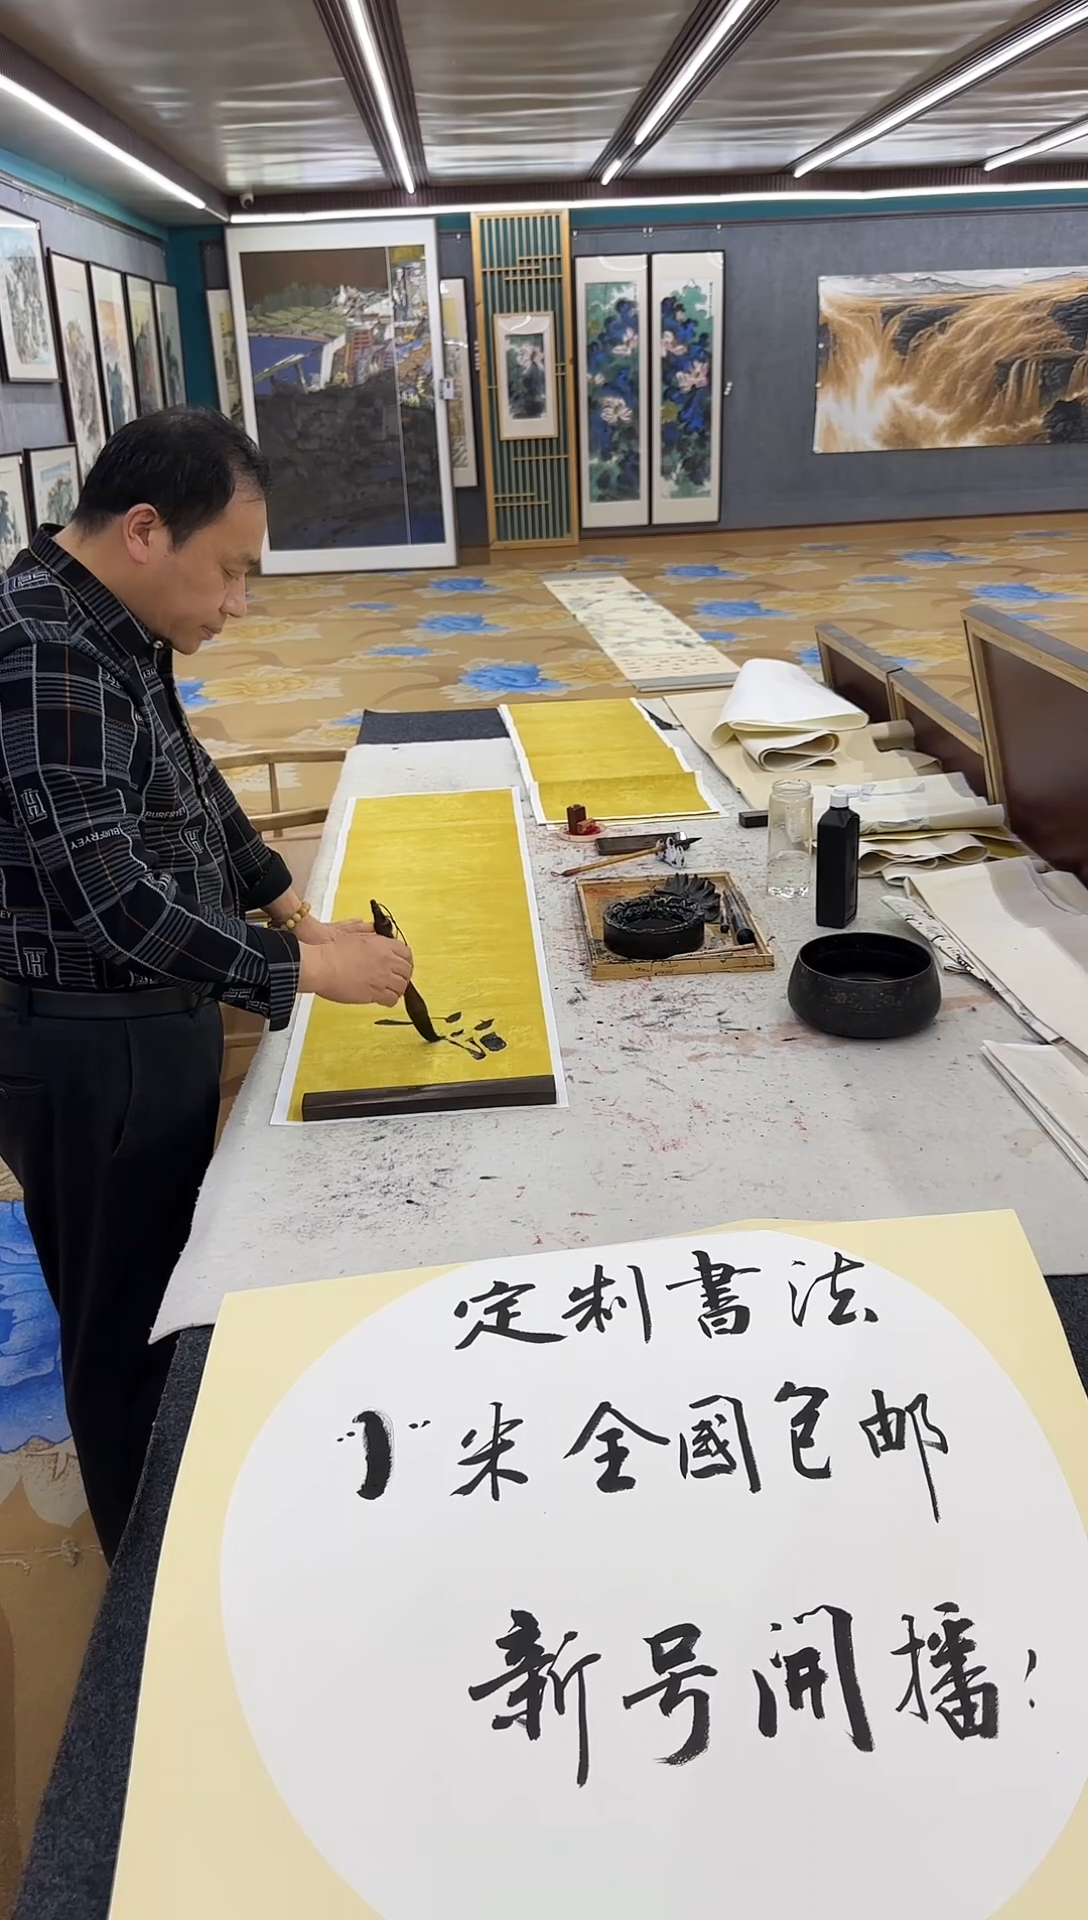 定制書法
"1"米全國包邮
新号開播！
BURFRYEY
BURFRYEY
H
H
H